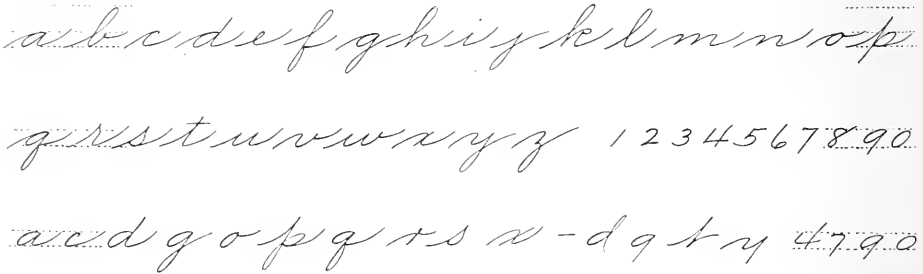 a b c d e f g h i j k l m n o p
q r s t u v w x y z 1 2 3 4 5 6 7 8 9 0
a c d g o p q r s x - d q t y 4 7 9 0